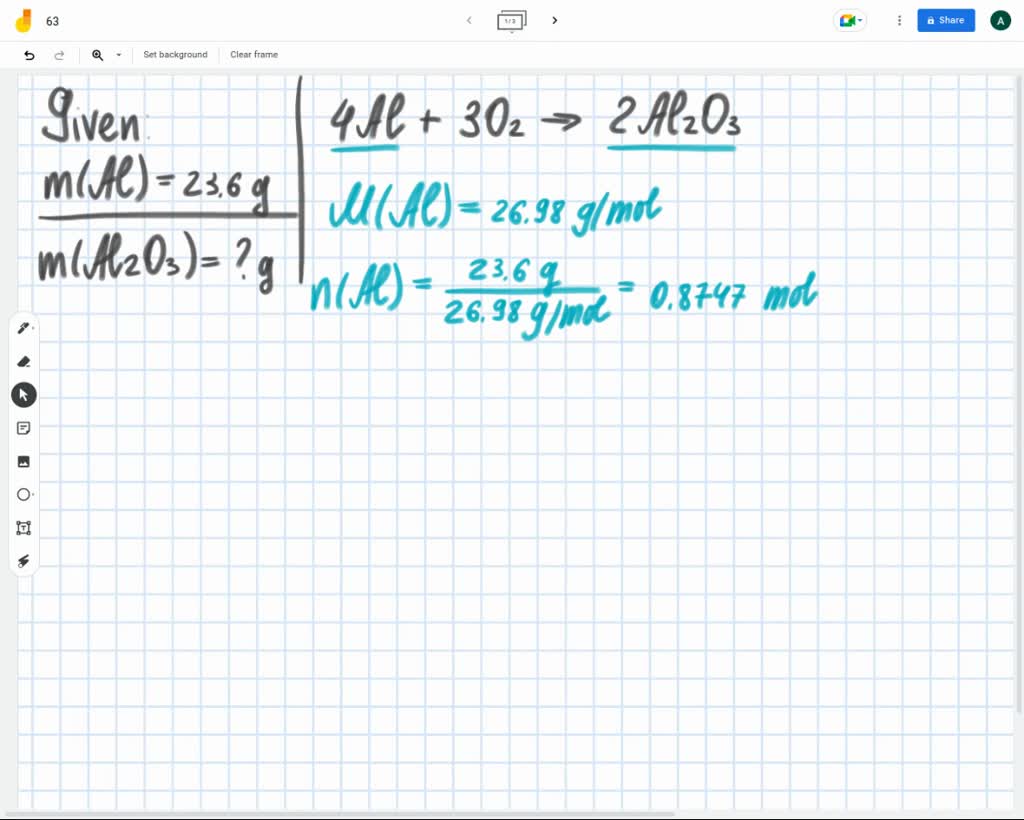 63
1/3
Share
A
Set background
Clear frame
Given:
m(Al) = 23.6 g
m(Al₂O₃) = ? g
4Al + 3O₂ → 2Al₂O₃
M(Al) = 26.98 g/mol
n(Al) = 23.6 g / 26.98 g/mol = 0.8747 mol